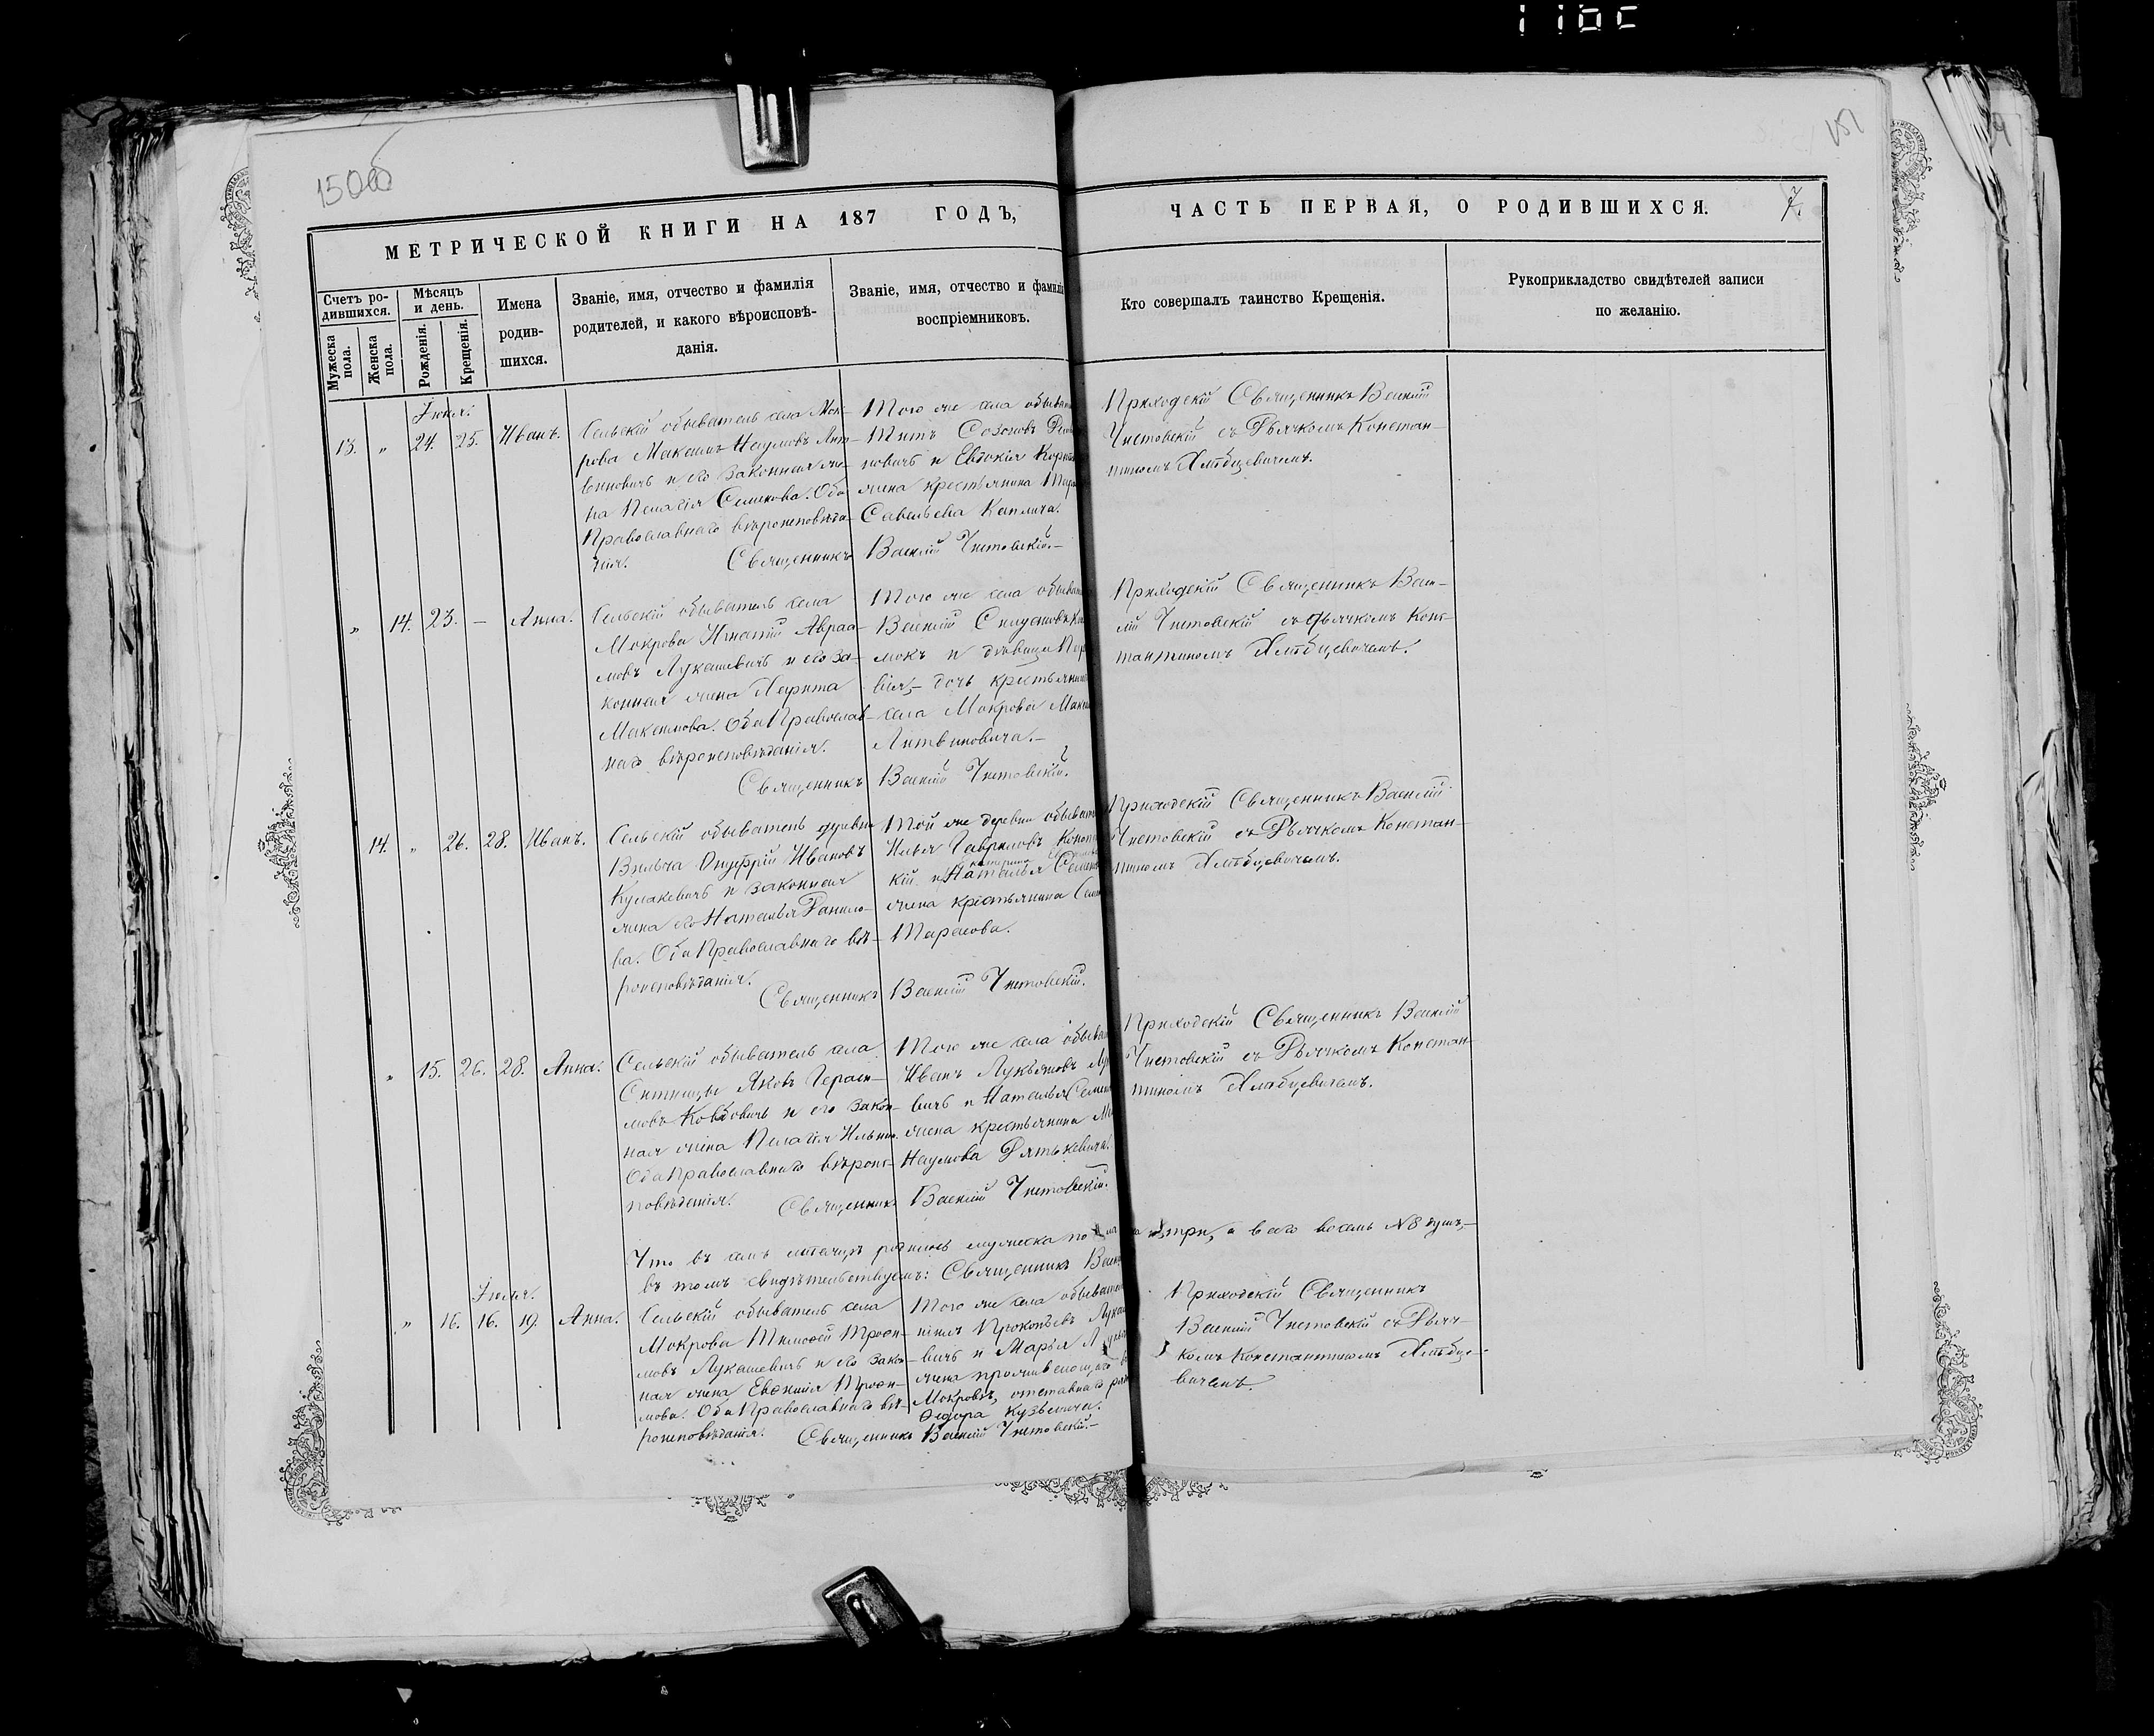 150об
151
МЕТРИЧЕСКОЙ КНИГИ НА 187 ГОДЪ,
ЧАСТЬ ПЕРВАЯ, О РОДИВШИХСЯ.
7.
Счетъ ро-
дившихся.
Мужеска
пола.
Женска
пола.
Мѣсяцъ
и день.
Рожденія.
Крещенія.
Имена
родив-
шихся.
Званіе, имя, отчество и фамилія
родителей, и какого вѣроисповѣ-
данія.
Званіе, имя, отчество и фамилі
воспріемниковъ.
Кто совершалъ таинство Крещенія.
Рукоприкладство свидѣтелей записи
по желанію.
Іюня.
13. „ 24. 25. Иванъ.
Сельскій обыватель села Мок-
рова Максимъ Наумовъ Лит-
виновичъ и его законная же-
на Пелагія Семенова. Оба
Православнаго вѣроисповѣда-
нія.
Того же села обыва
Титъ Созоновъ
новичъ и Евдокія
жена крестьянина
Савельева Каплича.
Священникъ Василій Чистовскій.
Приходскій Священникъ Василій
Чистовскій съ Дьячкомъ Констан-
тиномъ Хлѣбцевичемъ.
„ 14. 23. — Анна.
Сельскій обыватель села
Мокрова Игнатій Авраа-
мовъ Лукашевичъ и его за-
конная жена Харита
Максимова. Оба Православ-
наго вѣроисповѣданія.
Того же села обыва
Василій
мокъ и дѣвица
вія, — дочь крестьянин
села Мокрова Макси
Литвиновича.—
Священникъ Василій Чистовскій.
Приходскій Священникъ Васи-
лій Чистовскій съ дьячкомъ Конс-
тантиномъ Хлѣбцевичемъ.
14. „ 26. 28. Иванъ.
Сельскій обыватель деревни
Вильча Онуфрій Ивановъ
Кулакевичъ и законная
жена его Наталья Данило-
ва. Оба Православнаго вѣ-
роисповѣданія.
Той же деревни обыват
Илья Гавриловъ
Катерина
кій и Наталья Семен
жена крестьянина Семе
Тарасова.
Священникъ Василій Чистовскій.
Приходскій Священникъ Василій
Чистовскій съ Дьячкомъ Констан-
тиномъ Хлѣбцевичемъ.
„ 15. 26. 28. Анна.
Сельскій обыватель села
Ситницы Яковъ Гераси-
мовъ Ковбовичъ и его закон-
ная жена Пелагія Ильина.
Оба Православнаго вѣроис-
повѣданія.
Того же села обыва
Иванъ Лукьяновъ
вичъ и Наталья Семен
жена крестьянина
Наумова
Священникъ Василій Чистовскій.
Приходскій Священникъ Василій
Чистовскій съ Дьячкомъ Констан-
тиномъ Хлѣбцевичемъ.
Что въ семъ мѣсяцѣ родилось мужеска по три, а всего восемь №8 душъ,—
въ томъ свидѣтельствуемъ: Священникъ Васи
Іюля.
„ 16. 16. 19. Анна.
Сельскій обыватель села
Мокрова Тимофей Трофи-
мовъ Лукашевичъ и его закон-
ная жена Евфимія Трофи-
мова. Оба Православнаго вѣ-
роисповѣданія.
Того же села обыватель
Прокопьевъ Лукаше
вичъ и Марья
жена проживающаго въ
Мокровѣ, отставнаго
Ѳедора Кузьмича.
Священникъ Василій Чистовскій.—
Приходскій Священникъ
Василій Чистовскій съ Дьяч-
комъ Константиномъ Хлѣбце-
вичемъ.